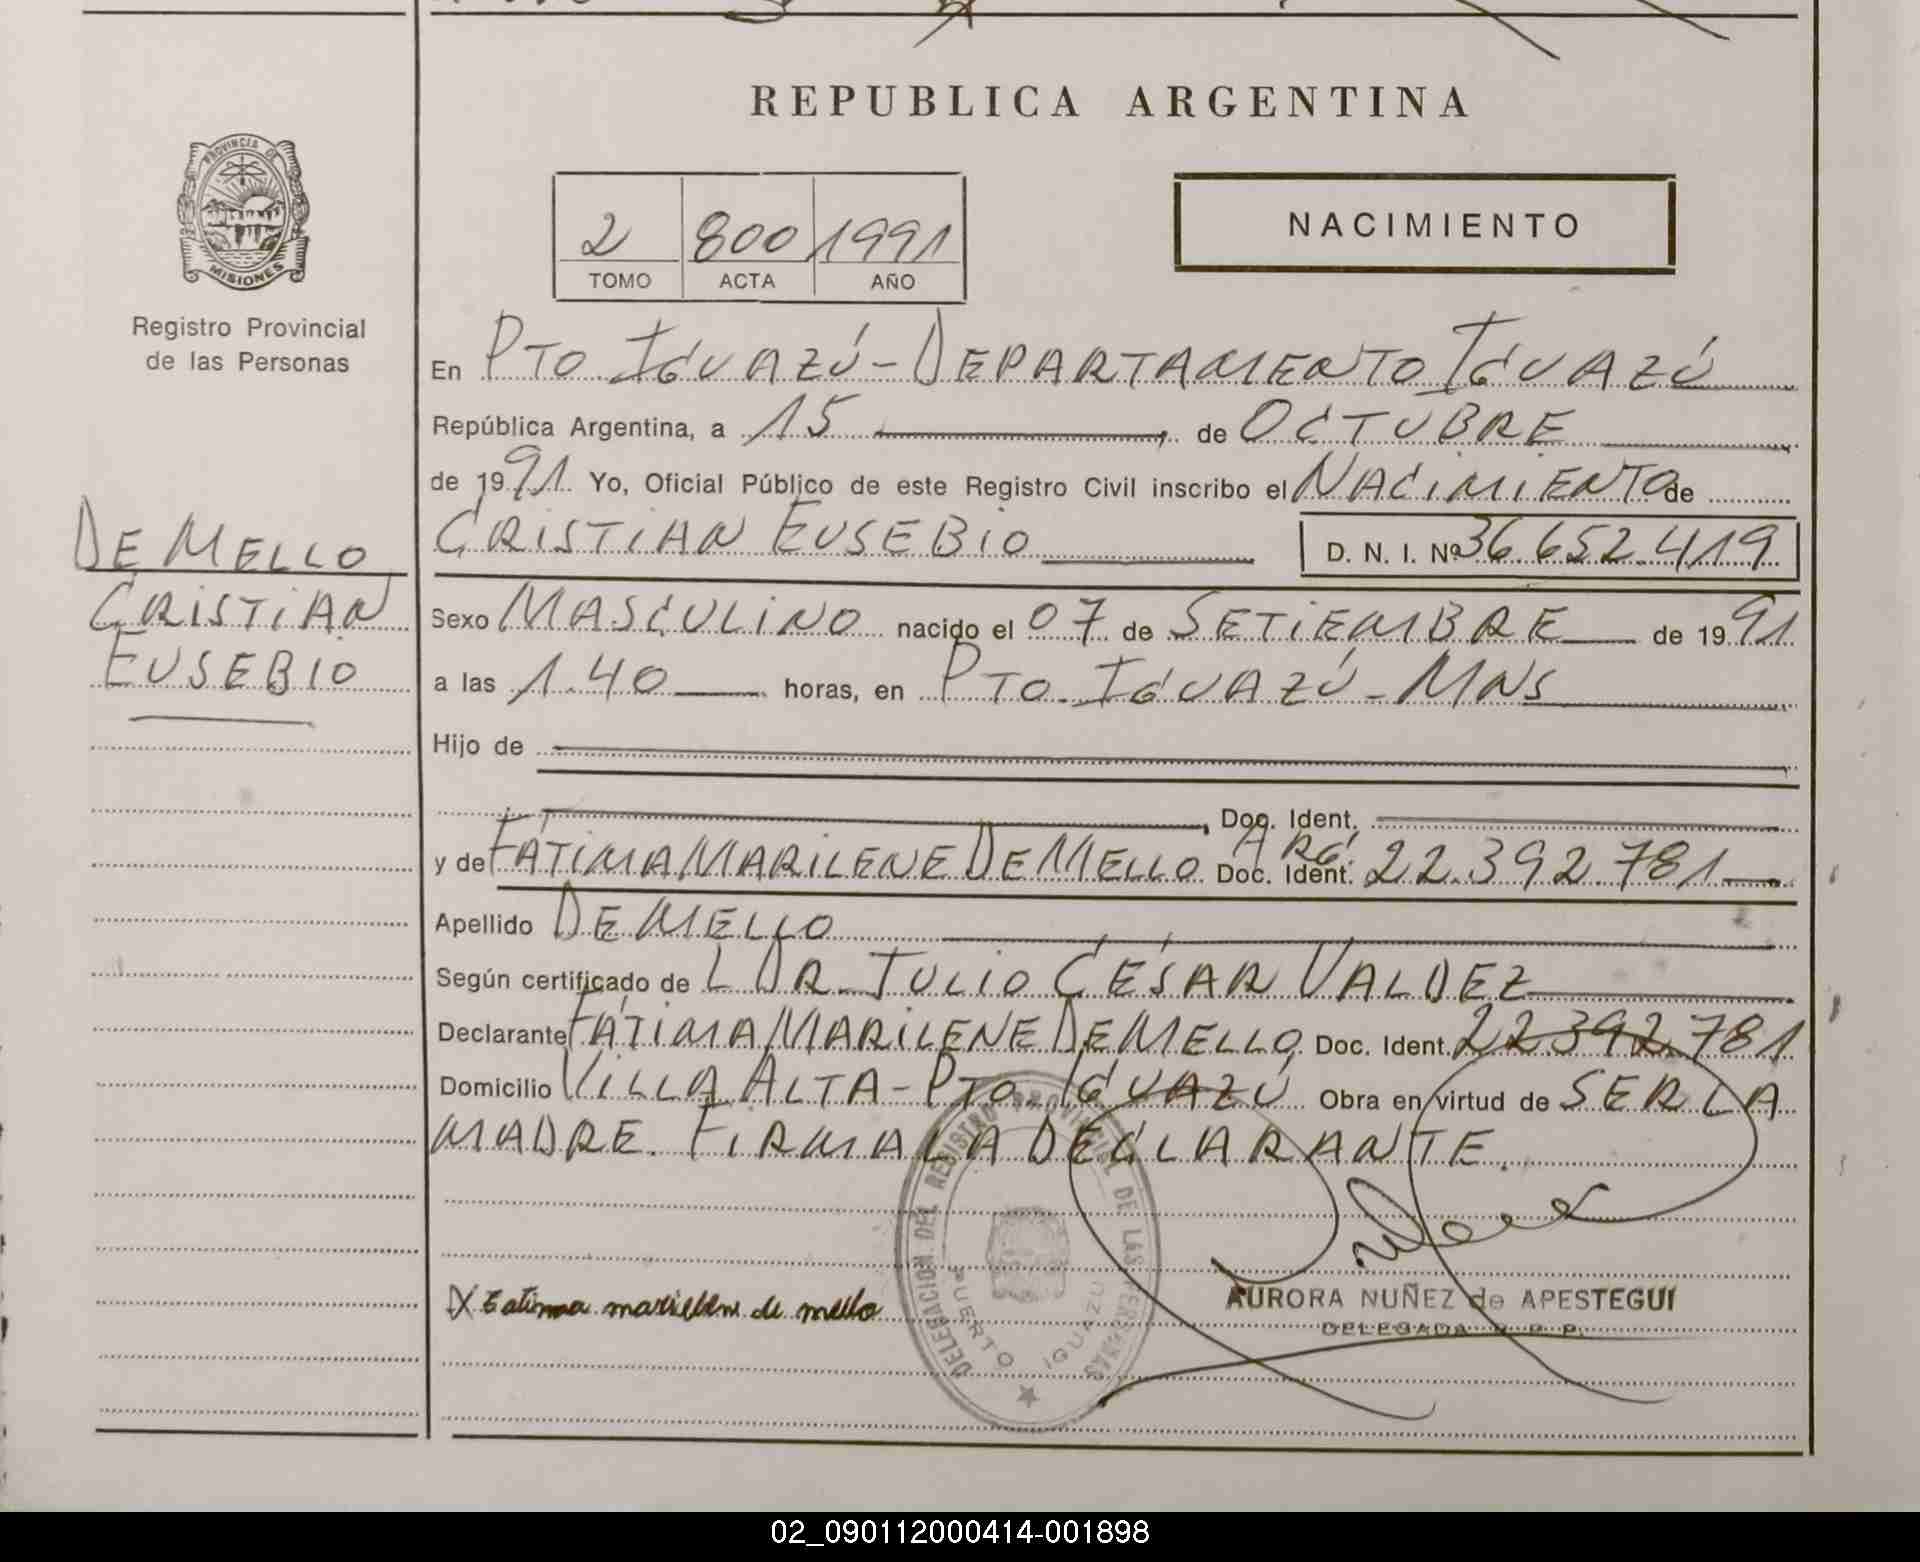 REPUBLICA ARGENTINA
PROVINCIA DE
MISIONES
Registro Provincial
de las Personas
2 800 1991
TOMO ACTA AÑO
NACIMIENTO
DE MELLO
CRISTIAN
EUSEBIO
En PTO IGUAZÚ - DEPARTAMENTO IGUAZÚ
República Argentina, a 15 de OCTUBRE
de 1991. Yo, Oficial Público de este Registro Civil inscribo el NACIMIENTO de
CRISTIAN EUSEBIO D. N. I. Nº 36.652.419
Sexo MASCULINO nacido el 07 de SETIEMBRE de 1991
a las 1.40 horas, en PTO. IGUAZÚ - MNS
Hijo de
, Doc. Ident.
y de FÁTIMA MARILENE DE MELLO Doc. Ident. ARG. 22.392.781
Apellido DE MELLO
Según certificado de L DR. JULIO CÉSAR VALDEZ
Declarante FÁTIMA MARILENE DE MELLO Doc. Ident. 22.392.781
Domicilio VILLA ALTA - PTO. IGUAZÚ Obra en virtud de SER LA
MADRE. FIRMA LA DECLARANTE.
DELEGACION DEL REGISTRO PROVINCIAL DE LAS PERSONAS
PUERTO IGUAZU
X Fatima marielene de mello
AURORA NUÑEZ de APESTEGUI
DELEGADA R. P. P.
02_090112000414-001898